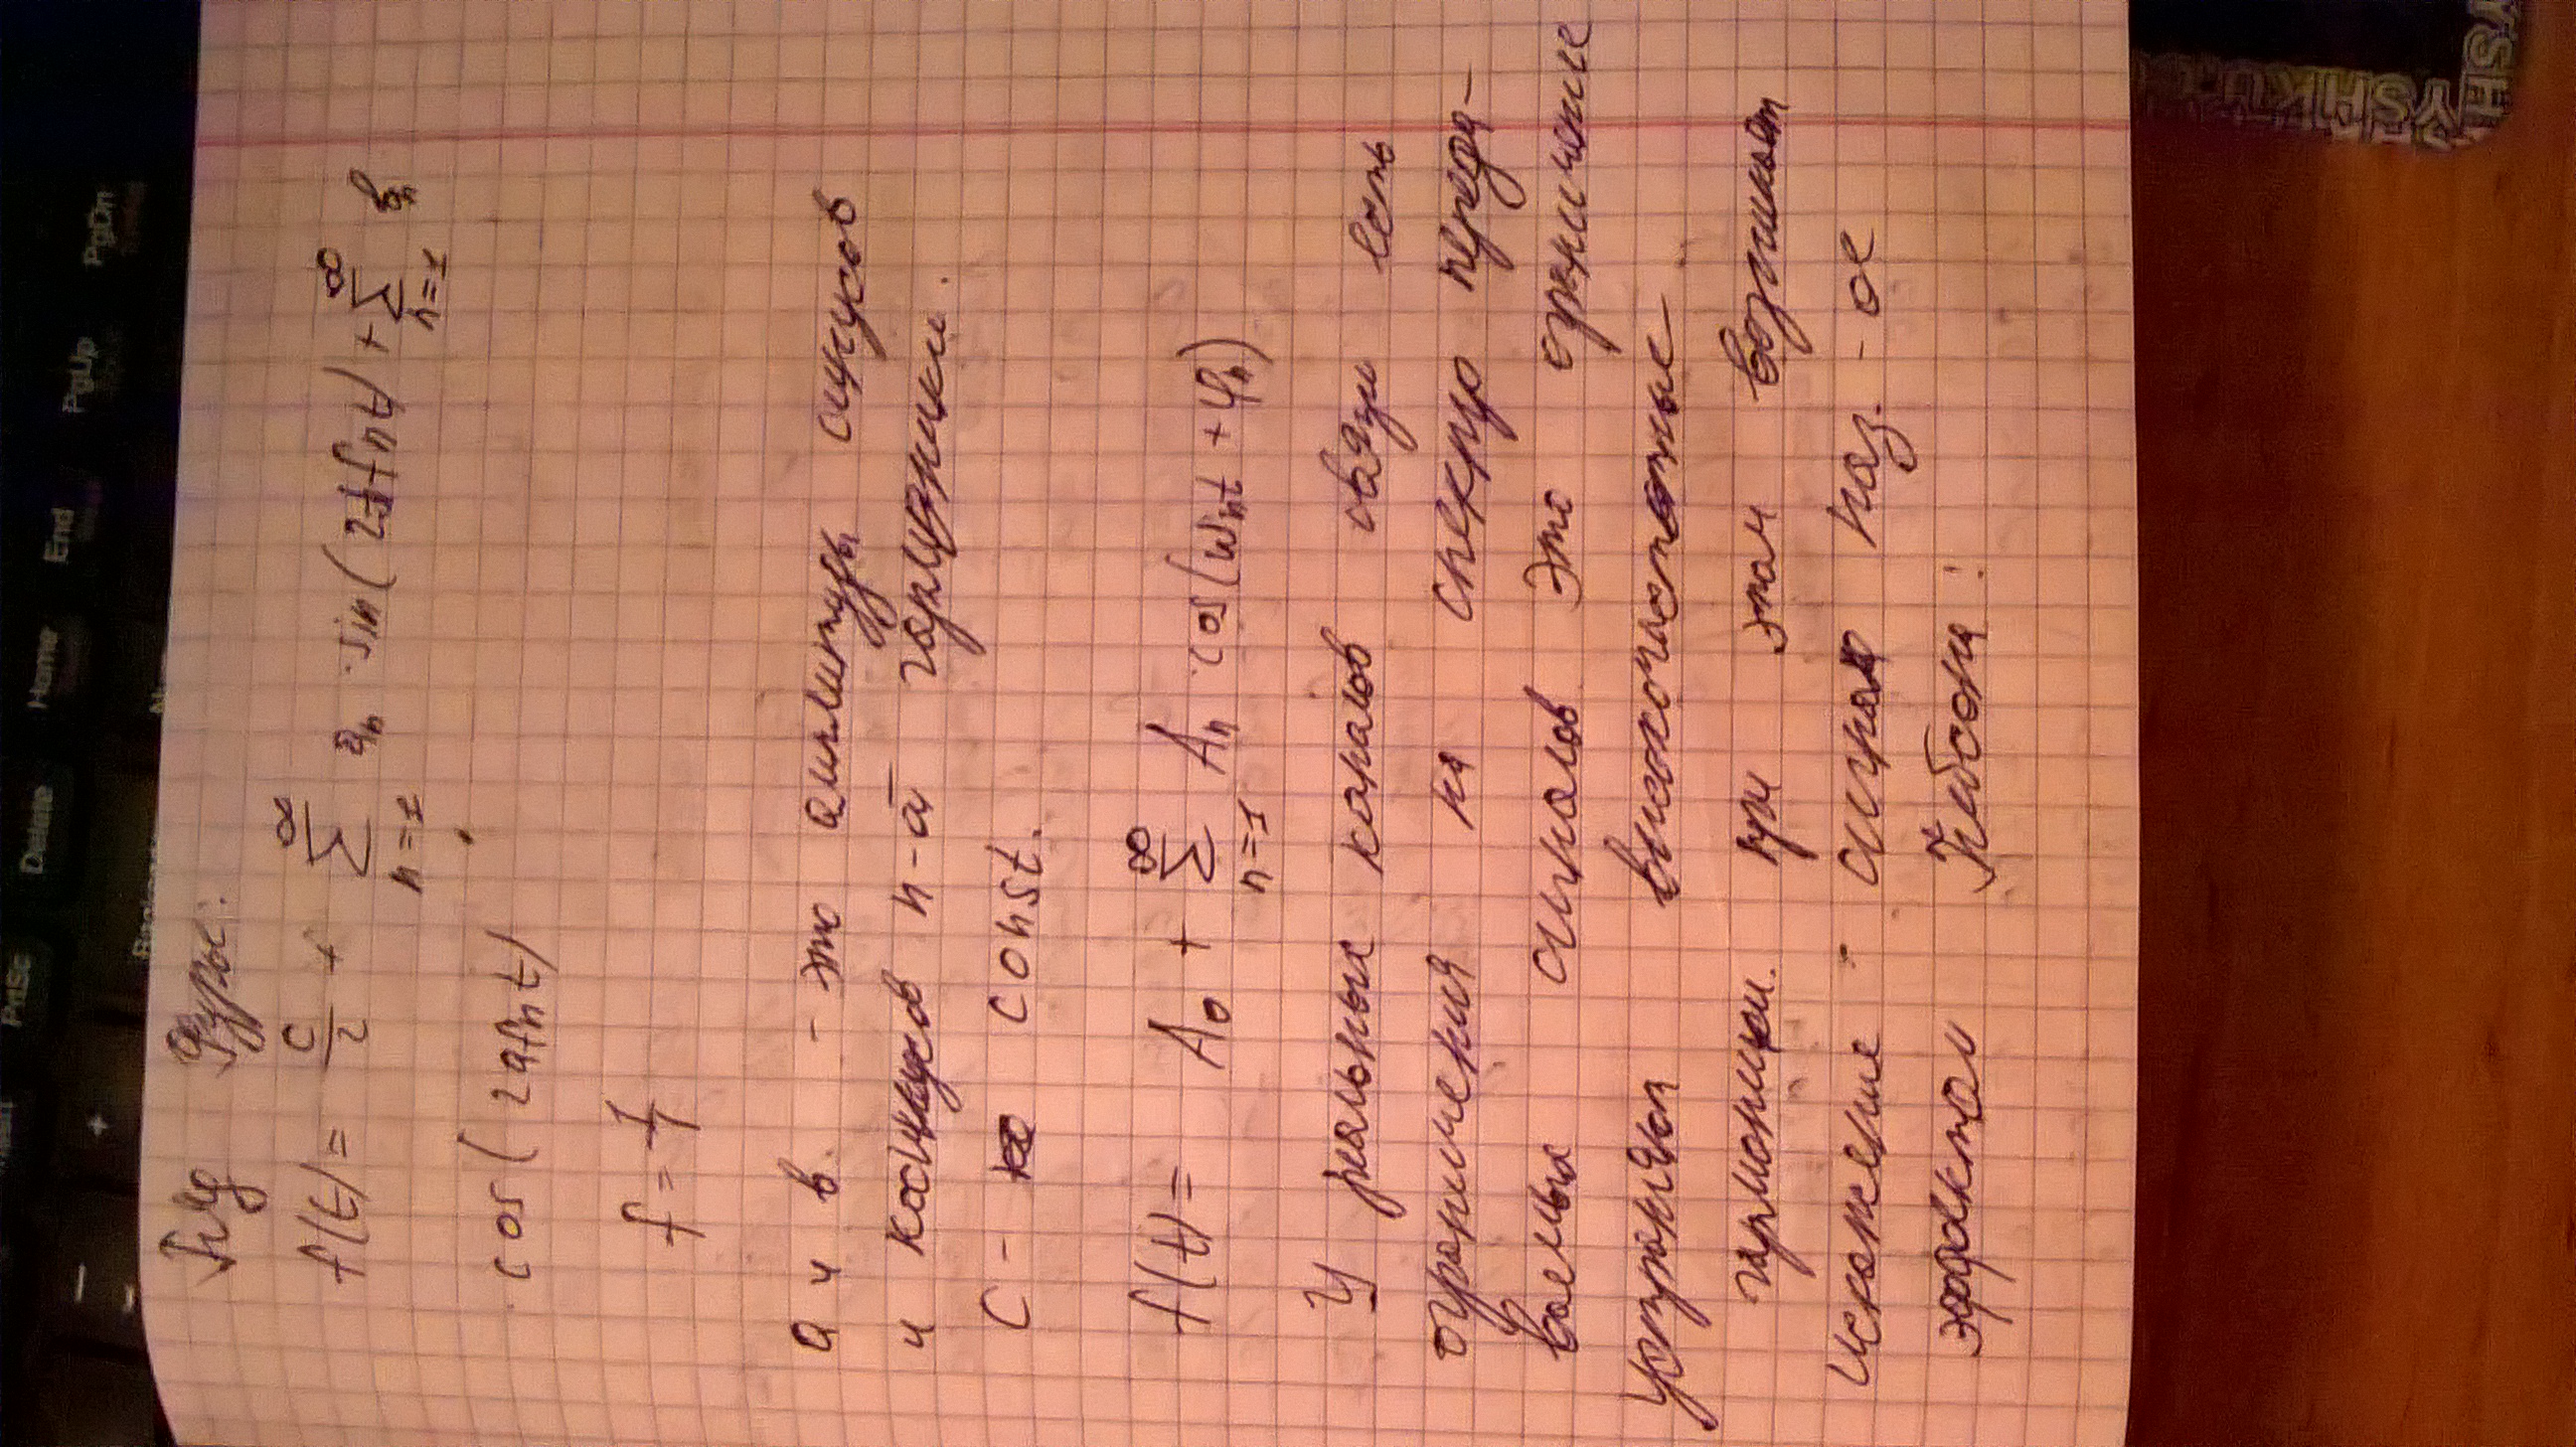 PrtSc Delete Home End PgUp PgDn
Ряд Фурье:
f(t) = c/2 + ∑ n=1 ∞ aₙ · sin(2πfnt) + ∑ n=1 ∞ bₙ
cos(2πfnt)
f = 1/T
a и в. - это амплитуды синусов
и косинусов n-ой гармоники.
C - const.
f(t) = A₀ + ∑ n=1 ∞ Aₙ · cos(wₙt + φₙ)
У реальных каналов связи есть
ограничения на спектр переда-
ваемых сигналов. Это ограничение
устраняют высокочастотные
гармоники. при этом возникает
искажение сигнала наз. - ое
эффектом Гибсона: